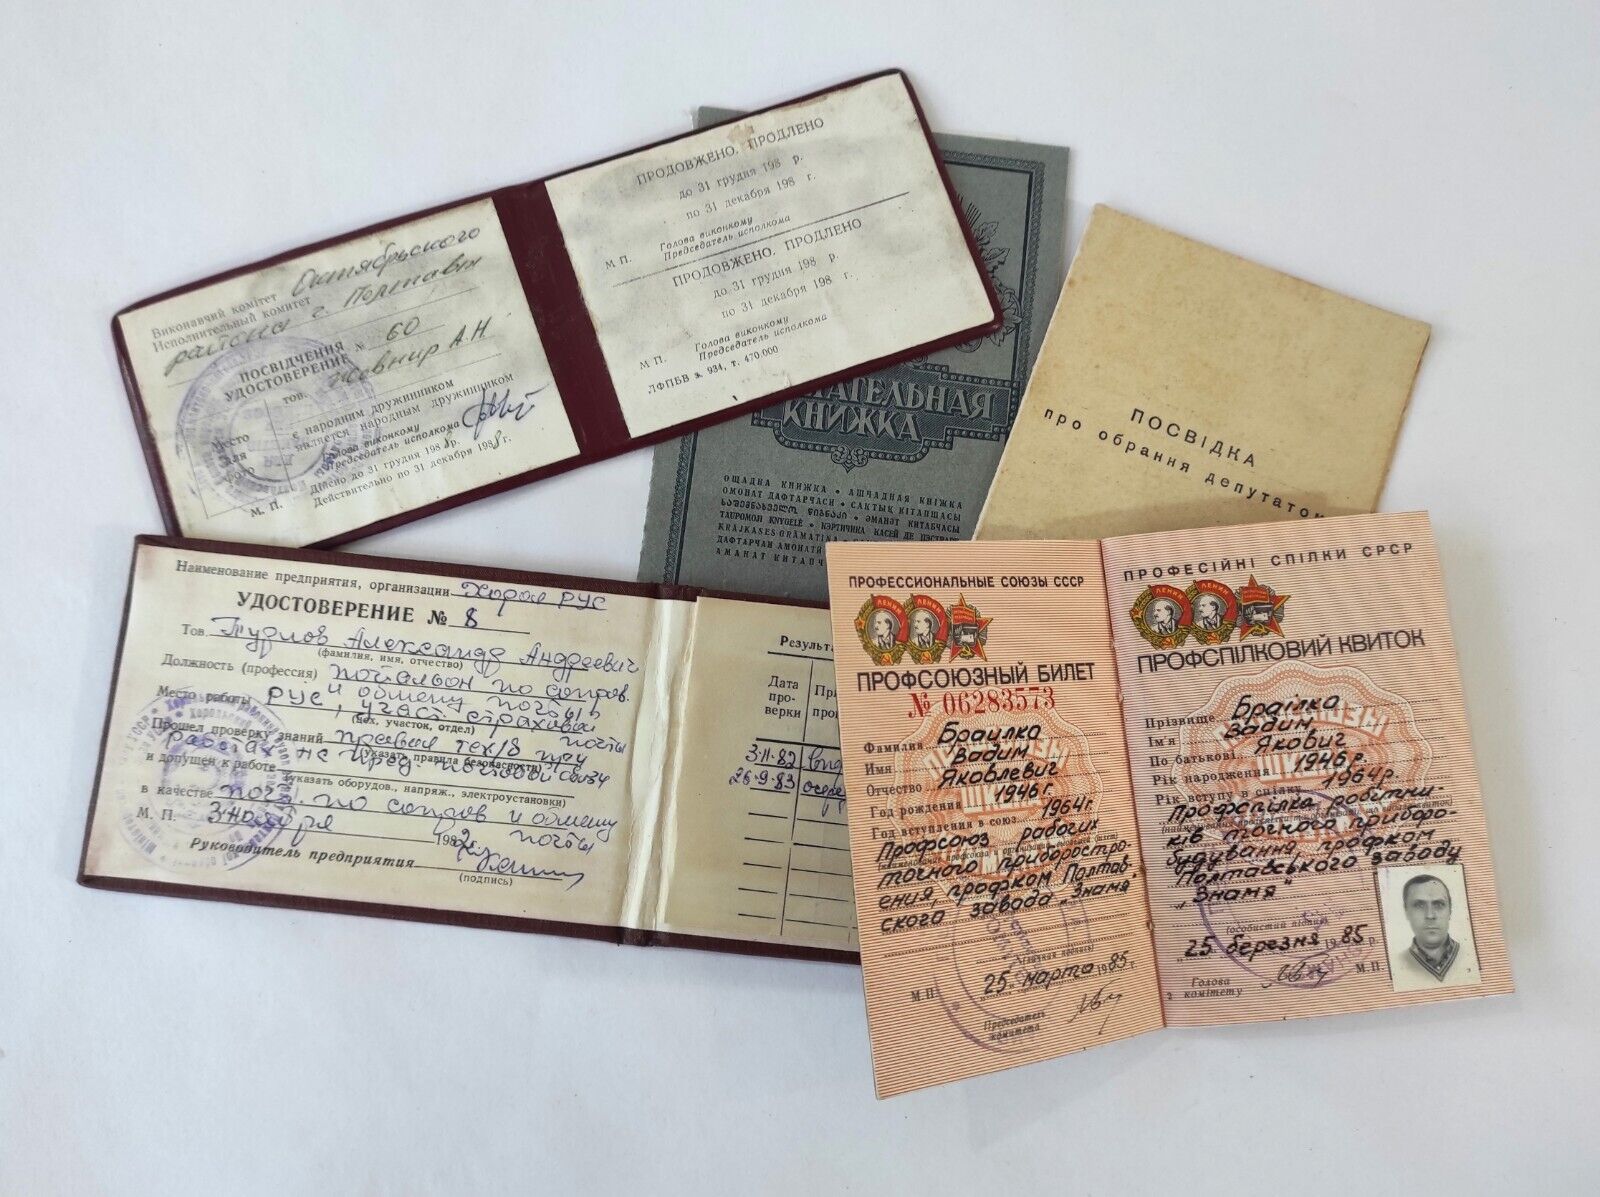 Виконавчий комітет Октябрьского
Исполнительный комитет
района г. Полтавы
ПОСВІДЧЕННЯ
УДОСТОВЕРЕНИЕ № 60
тов. Жовнир А.Н.
є народним дружинником
является народным дружинником
Место
для
фото
Голова виконкому
Председатель исполкома
М. П.
Дійсно до 31 грудня 1988 р.
Действительно по 31 декабря 1988 г.
ПРОДОВЖЕНО. ПРОДЛЕНО
до 31 грудня 198 р.
по 31 декабря 198 г.
Голова виконкому
М П. Председатель исполкома
ПРОДОВЖЕНО. ПРОДЛЕНО
до 31 грудня 198 р.
по 31 декабря 198 г.
Голова виконкому
М П. Председатель исполкома
ЛФПБВ з. 934, т. 470.000
АТЕЛЬНАЯ
КНИЖКА
ОЩАДНА КНИЖКА • АШЧАДНАЯ КНІЖКА
ОМОНАТ ДАФТАРЧАСИ • САКТЫҚ КІТАПШАСЫ
ӘМАНӘТ КИТАБЧАСЫ
TAUPOMOJI KNYGELĖ • КЭРТИЧИКА КАСЕЙ ДЕ ПЭСТРАРЕ
KRĀJKASES GRĀMATIŅA
ДАФТАРЧАИ АМОНАТИ
АМАНАТ КИТАПЧ
ПОСВІДКА
про обрання депутатом
Наименование предприятия, организации Хорол РУС
УДОСТОВЕРЕНИЕ № 8
Тов. Александр Андреевич
(фамилия, имя, отчество)
Должность (профессия) почтальон по сопров.
и обмену почты
Место работы РУС, участ. страховой
(цех, участок, отдел)
почты
Прошел проверку знаний правил тех/б при
(указать правила безопасности)
работах на пред. почтовой связи
и допущен к работе
(указать оборудов., напряж., электроустановки)
в качестве почт. по сопров и обмену
почты
М. П. 3 ноября 1982 г.
Руководитель предприятия
(подпись)
Результа
Дата
про-
верки
При
про
3.11.82
26.9.83
ПРОФЕССИОНАЛЬНЫЕ СОЮЗЫ СССР
ЛЕНИН ЛЕНИН
ПРОФСОЮЗНЫЙ БИЛЕТ
№ 06283573
Фамилия Браилка
Имя Вадим
Отчество Яковлевич
Год рождения 1946г.
Год вступления в союз 1964г.
Профсоюз рабочих
точного приборостро-
ения, профком Полтав-
ского завода „Знамя"
(личная подпись)
М.П. „25" марта 1985 г.
Председатель
комитета
ПРОФЕСІЙНІ СПІЛКИ СРСР
ЛЕНИН ЛЕНИН
ПРОФСПІЛКОВИЙ КВИТОК
Прізвище Браїлка
Ім'я Вадим
По батькові Якович
Рік народження 1946р.
Рік вступу в спілку 1964р.
Профспілка робітни-
ків точного приборо-
будування, профком
Полтавського заводу
„Знамя"
(особистий підпис)
„25" березня 1985 р.
Голова
комітету
М.П.
2